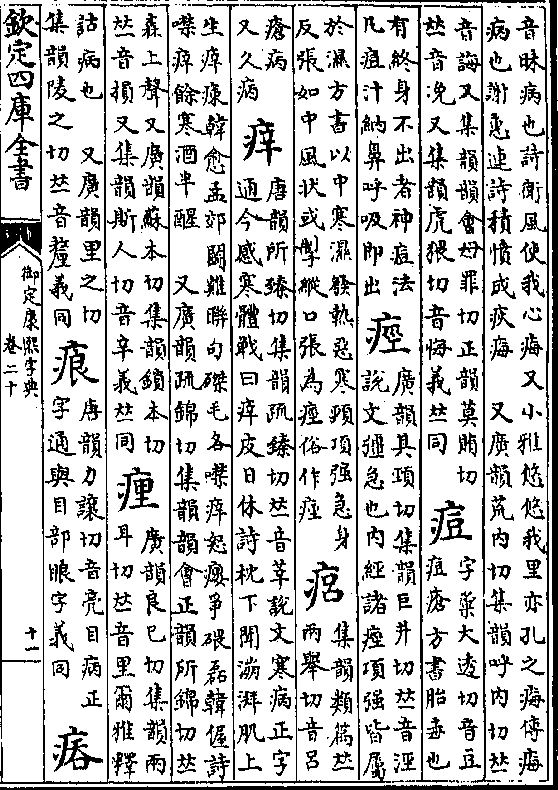 音昧病也詩衛風使我心痗又小雅悠悠我里亦孔之痗傳痗
病也謝惠連詩積憤成疢痗　又廣韻荒內切集韻呼內切𠀤
音誨又集韻韻會母罪切正韻莫賄切
𠀤音浼又集韻虎猥切音悔義𠀤同
痘
字彙大透切音豆
疽瘡方書胎毒也
有終身不出者神痘法
凡痘汁納鼻呼吸即出
痙
廣韻其頸切集韻巨井切𠀤音涇
說文彊急也內經諸痙項强皆屬
於濕方書以中寒濕發熱惡寒頸項强急身
反張如中風狀或縱口張為痙俗作痓
集韻類篇𠀤
兩舉切音呂
瘡病
又久病
㾕
唐韻所臻切集韻疏臻切𠀤音莘說文寒病正字
通今感寒體戰曰㾕皮日休詩枕下聞澎湃肌上
生㾕瘝韓愈孟郊鬭雞聯句磔毛各噤㾕怒癭爭碨磊韓偓詩
噤㾕餘寒酒半醒　又廣韻疏錦切集韻韻會正韻所錦切𠀤
森上聲又廣韻蘇本切集韻鎖本切
𠀤音損又集韻斯人切音辛義𠀤同
㾖
廣韻良已切集韻兩
耳切𠀤音里爾雅釋
詁病也　又廣韻里之切
集韻陵之切𠀤音釐義同
㾗
唐韻力讓切音亮目病正
字通與目部眼字義同
欽定四庫全書
御定康熙字典
卷二十
十一